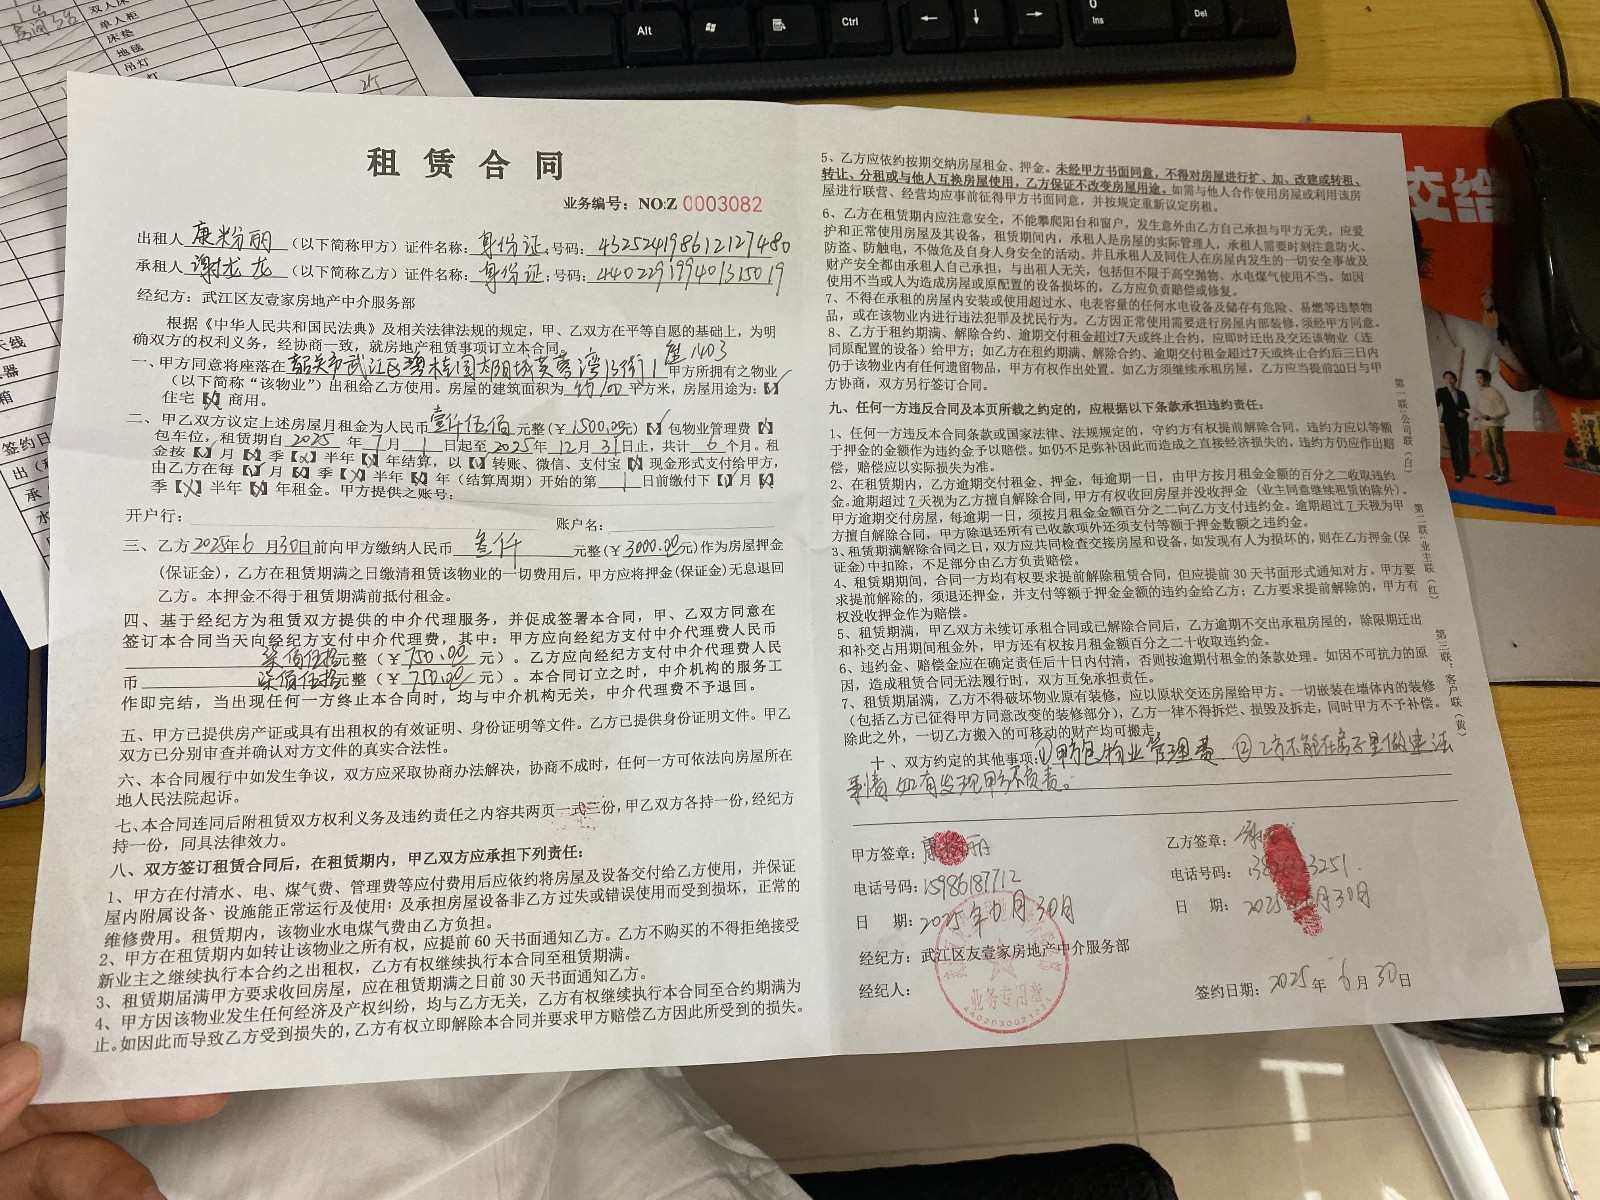 双人床
单人柜
床垫
地毯
吊灯
Alt
Ctrl
0
Ins
Del
交给
租赁合同
业务编号：NO:Z 0003082
出租人 康粉丽 （以下简称甲方）证件名称：身份证，号码：432524198612127480
承租人 谢龙龙 （以下简称乙方）证件名称：身份证，号码：440229199401315019
经纪方：武江区友壹家房地产中介服务部
根据《中华人民共和国民法典》及相关法律法规的规定，甲、乙双方在平等自愿的基础上，为明
确双方的权利义务，经协商一致，就房地产租赁事项订立本合同。
一、甲方同意将座落在 韶关市武江区碧桂园太阳城芙蓉湾15街1座1403 甲方所拥有之物业
（以下简称“该物业”）出租给乙方使用。房屋的建筑面积为 约100 平方米，房屋用途为：【✓】
住宅【×】商用。
二、甲乙双方议定上述房屋月租金为人民币 壹仟伍佰 元整（￥1500.00元）【✓】包物业管理费【×】
包车位，租赁期自 2025 年 7 月 1 日起至 2025 年 12 月 31 日止，共计 6 个月。租
金按【✓】月【×】季【×】半年【×】年结算，以【✓】转账、微信、支付宝【×】现金形式支付给甲方，
由乙方在每【✓】月【×】季【×】半年【×】年（结算周期）开始的第 1 日前缴付下【✓】月【×】
季【×】半年【×】年租金。甲方提供之账号：
开户行： 账户名：
三、乙方 2025年6月30日前向甲方缴纳人民币 叁仟 元整（￥3000.00元）作为房屋押金
（保证金），乙方在租赁期满之日缴清租赁该物业的一切费用后，甲方应将押金（保证金）无息退回
乙方。本押金不得于租赁期满前抵付租金。
四、基于经纪方为租赁双方提供的中介代理服务，并促成签署本合同，甲、乙双方同意在
签订本合同当天向经纪方支付中介代理费，其中：甲方应向经纪方支付中介代理费人民币
柒佰伍拾元整（￥750.00 元）。乙方应向经纪方支付中介代理费人民
币 柒佰伍拾元整（￥750.00 元）。本合同订立之时，中介机构的服务工
作即完结，当出现任何一方终止本合同时，均与中介机构无关，中介代理费不予退回。
五、甲方已提供房产证或具有出租权的有效证明、身份证明等文件。乙方已提供身份证明文件。甲乙
双方已分别审查并确认对方文件的真实合法性。
六、本合同履行中如发生争议，双方应采取协商办法解决，协商不成时，任何一方可依法向房屋所在
地人民法院起诉。
七、本合同连同后附租赁双方权利义务及违约责任之内容共两页一式三份，甲乙双方各持一份，经纪方
持一份，同具法律效力。
八、双方签订租赁合同后，在租赁期内，甲乙双方应承担下列责任：
1、甲方在付清水、电、煤气费、管理费等应付费用后应依约将房屋及设备交付给乙方使用，并保证
屋内附属设备、设施能正常运行及使用；及承担房屋设备非乙方过失或错误使用而受到损坏，正常的
维修费用。租赁期内，该物业水电煤气费由乙方负担。
2、甲方在租赁期内如转让该物业之所有权，应提前 60 天书面通知乙方。乙方不购买的不得拒绝接受
新业主之继续执行本合约之出租权，乙方有权继续执行本合同至租赁期满。
3、租赁期届满甲方要求收回房屋，应在租赁期满之日前 30 天书面通知乙方。
4、甲方因该物业发生任何经济及产权纠纷，均与乙方无关，乙方有权继续执行本合同至合约期满为
止。如因此而导致乙方受到损失的，乙方有权立即解除本合同并要求甲方赔偿乙方因此所受到的损失。
5、乙方应依约按期交纳房屋租金、押金。未经甲方书面同意，不得对房屋进行扩、加、改建或转租、
转让、分租或与他人互换房屋使用，乙方保证不改变房屋用途。如需与他人合作使用房屋或利用该房
屋进行联营、经营均应事前征得甲方书面同意，并按规定重新议定房租。
6、乙方在租赁期内应注意安全，不能攀爬阳台和窗户，发生意外由乙方自己承担与甲方无关，应爱
护和正常使用房屋及其设备，租赁期间内，承租人是房屋的实际管理人，承租人需要时刻注意防火、
防盗、防触电，不做危及自身人身安全的活动。并且承租人及同住人在房屋内发生的一切安全事故及
财产安全都由承租人自己承担，与出租人无关，包括但不限于高空抛物、水电煤气使用不当。如因
使用不当或人为造成房屋或原配置的设备损坏的，乙方应负责赔偿或修复。
7、不得在承租的房屋内安装或使用超过水、电表容量的任何水电设备及储存有危险、易燃等违禁物
品，或在该物业内进行违法犯罪及扰民行为。乙方因正常使用需要进行房屋内部装修，须经甲方同意。
8、乙方于租约期满、解除合约、逾期交付租金超过7天或终止合约，应即时迁出及交还该物业（连
同原配置的设备）给甲方；如乙方在租约期满、解除合约、逾期交付租金超过7天或终止合约后三日内
仍于该物业内有任何遗留物品，甲方有权作出处置。如乙方须继续承租房屋，乙方应当提前30日与甲
方协商，双方另行签订合同。
九、任何一方违反合同及本页所载之约定的，应根据以下条款承担违约责任：
1、任何一方违反本合同条款或国家法律、法规规定的，守约方有权提前解除合同，违约方应以等额
于押金的金额作为违约金予以赔偿。如仍不足弥补因此而造成之直接经济损失的，违约方仍应作出赔
偿，赔偿应以实际损失为准。
2、在租赁期内，乙方逾期交付租金、押金，每逾期一日，由甲方按月租金金额的百分之二收取违约
金。逾期超过 7 天视为乙方擅自解除合同，甲方有权收回房屋并没收押金（业主同意继续租赁的除外）。
甲方逾期交付房屋，每逾期一日，须按月租金金额百分之二向乙方支付违约金。逾期超过 7 天视为甲
方擅自解除合同，甲方除退还所有已收款项外还须支付等额于押金数额之违约金。
3、租赁期满解除合同之日，双方应共同检查交接房屋和设备，如发现有人为损坏的，则在乙方押金（保
证金）中扣除，不足部分由乙方负责赔偿。
4、租赁期期间，合同一方均有权要求提前解除租赁合同，但应提前 30 天书面形式通知对方。甲方要
求提前解除的，须退还押金，并支付等额于押金金额的违约金给乙方；乙方要求提前解除的，甲方有
权没收押金作为赔偿。
5、租赁期满，甲乙双方未续订承租合同或已解除合同后，乙方逾期不交出承租房屋的，除限期迁出
和补交占用期间租金外，甲方还有权按月租金金额百分之二十收取违约金。
6、违约金、赔偿金应在确定责任后十日内付清，否则按逾期付租金的条款处理。如因不可抗力的原
因，造成租赁合同无法履行时，双方互免承担责任。
7、租赁期届满，乙方不得破坏物业原有装修，应以原状交还房屋给甲方。一切嵌装在墙体内的装修
（包括乙方已征得甲方同意改变的装修部分），乙方一律不得拆烂、损毁及拆走，同时甲方不予补偿。
除此之外，一切乙方搬入的可移动的财产均可搬走。
十、双方约定的其他事项：①甲方包物业管理费 ②乙方不能在房子里做违法
事情 如有发现甲方不负责。
甲方签章：康粉丽
电话号码：15986187712
日 期：2025年6月30日
经纪方：武江区友壹家房地产中介服务部
经纪人：
业务专用章
乙方签章：谢龙龙
电话号码：
日 期：2025年6月30日
签约日期：2025年6月30日
第一联：公司联（白）
第二联：业主联（红）
第三联：客户联（黄）